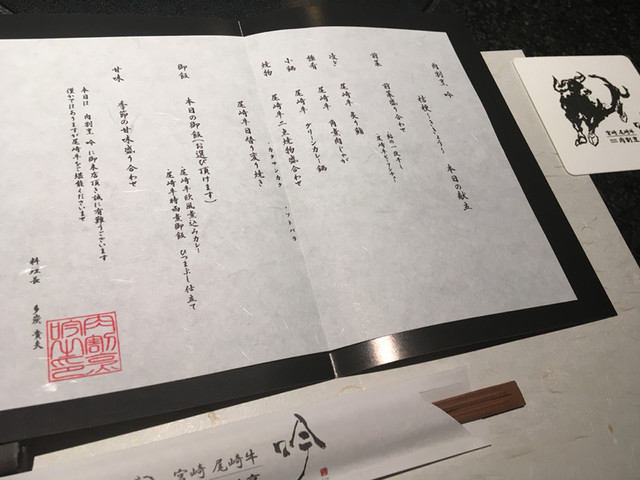 肉割烹 吟
桔梗(ききょう) 本日の献立
前菜 前菜盛り合わせ
尾崎牛 炙り鮨
強肴 尾崎牛 角煮肉じゃが
小鍋 尾崎牛 グリーンカレー鍋
焼物 尾崎牛二点焼物盛合わせ
・カタサンカク ・ソトバラ
尾崎牛日替り変り焼き
御飯 本日の御飯(お選び頂けます)
・尾崎牛欧風煮込みカレー
・尾崎牛時雨煮御飯 ひつまぶし仕立て
甘味 季節の甘味盛り合わせ
本日は 肉割烹 吟に御来店頂き誠に有難うございます
僅かではありますが尾崎牛をご堪能くださいませ
料理長
肉割烹
吟
宮崎 尾崎牛
肉割烹
宮崎 尾崎牛
吟